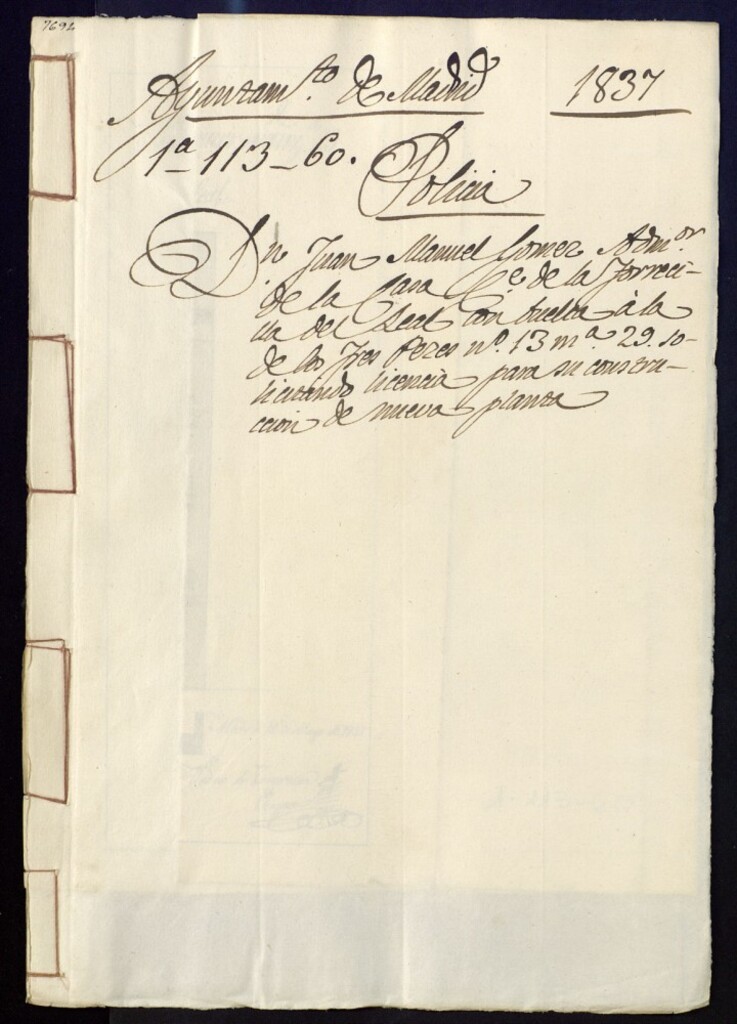 7692
Ayuntam.to de Madrid 1837
1a 113-60.
Policia
Dn Juan Manuel Gomez Admor
de la Casa C.e de la Torreci-
lla del Leal con buelta à la
de los Tres Peces nº. 13 m.a 29. so-
licitando licencia para su constru-
ccion de nueva planta